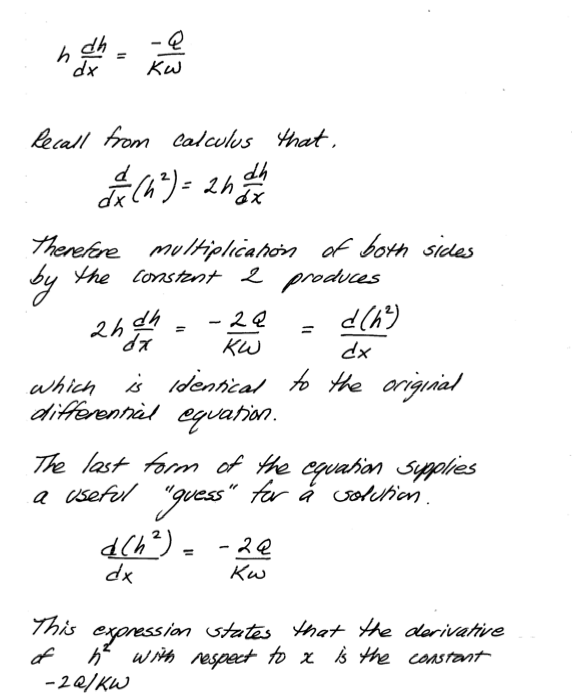 h dh/dx = -Q/Kw
Recall from calculus that,
d/dx (h²) = 2h dh/dx
Therefore multiplication of both sides
by the constant 2 produces
2h dh/dx = -2Q/Kw = d(h²)/dx
which is identical to the original
differential equation.
The last form of the equation supplies
a useful "guess" for a solution.
d(h²)/dx = -2Q/Kw
This expression states that the derivative
of h² with respect to x is the constant
-2Q/Kw